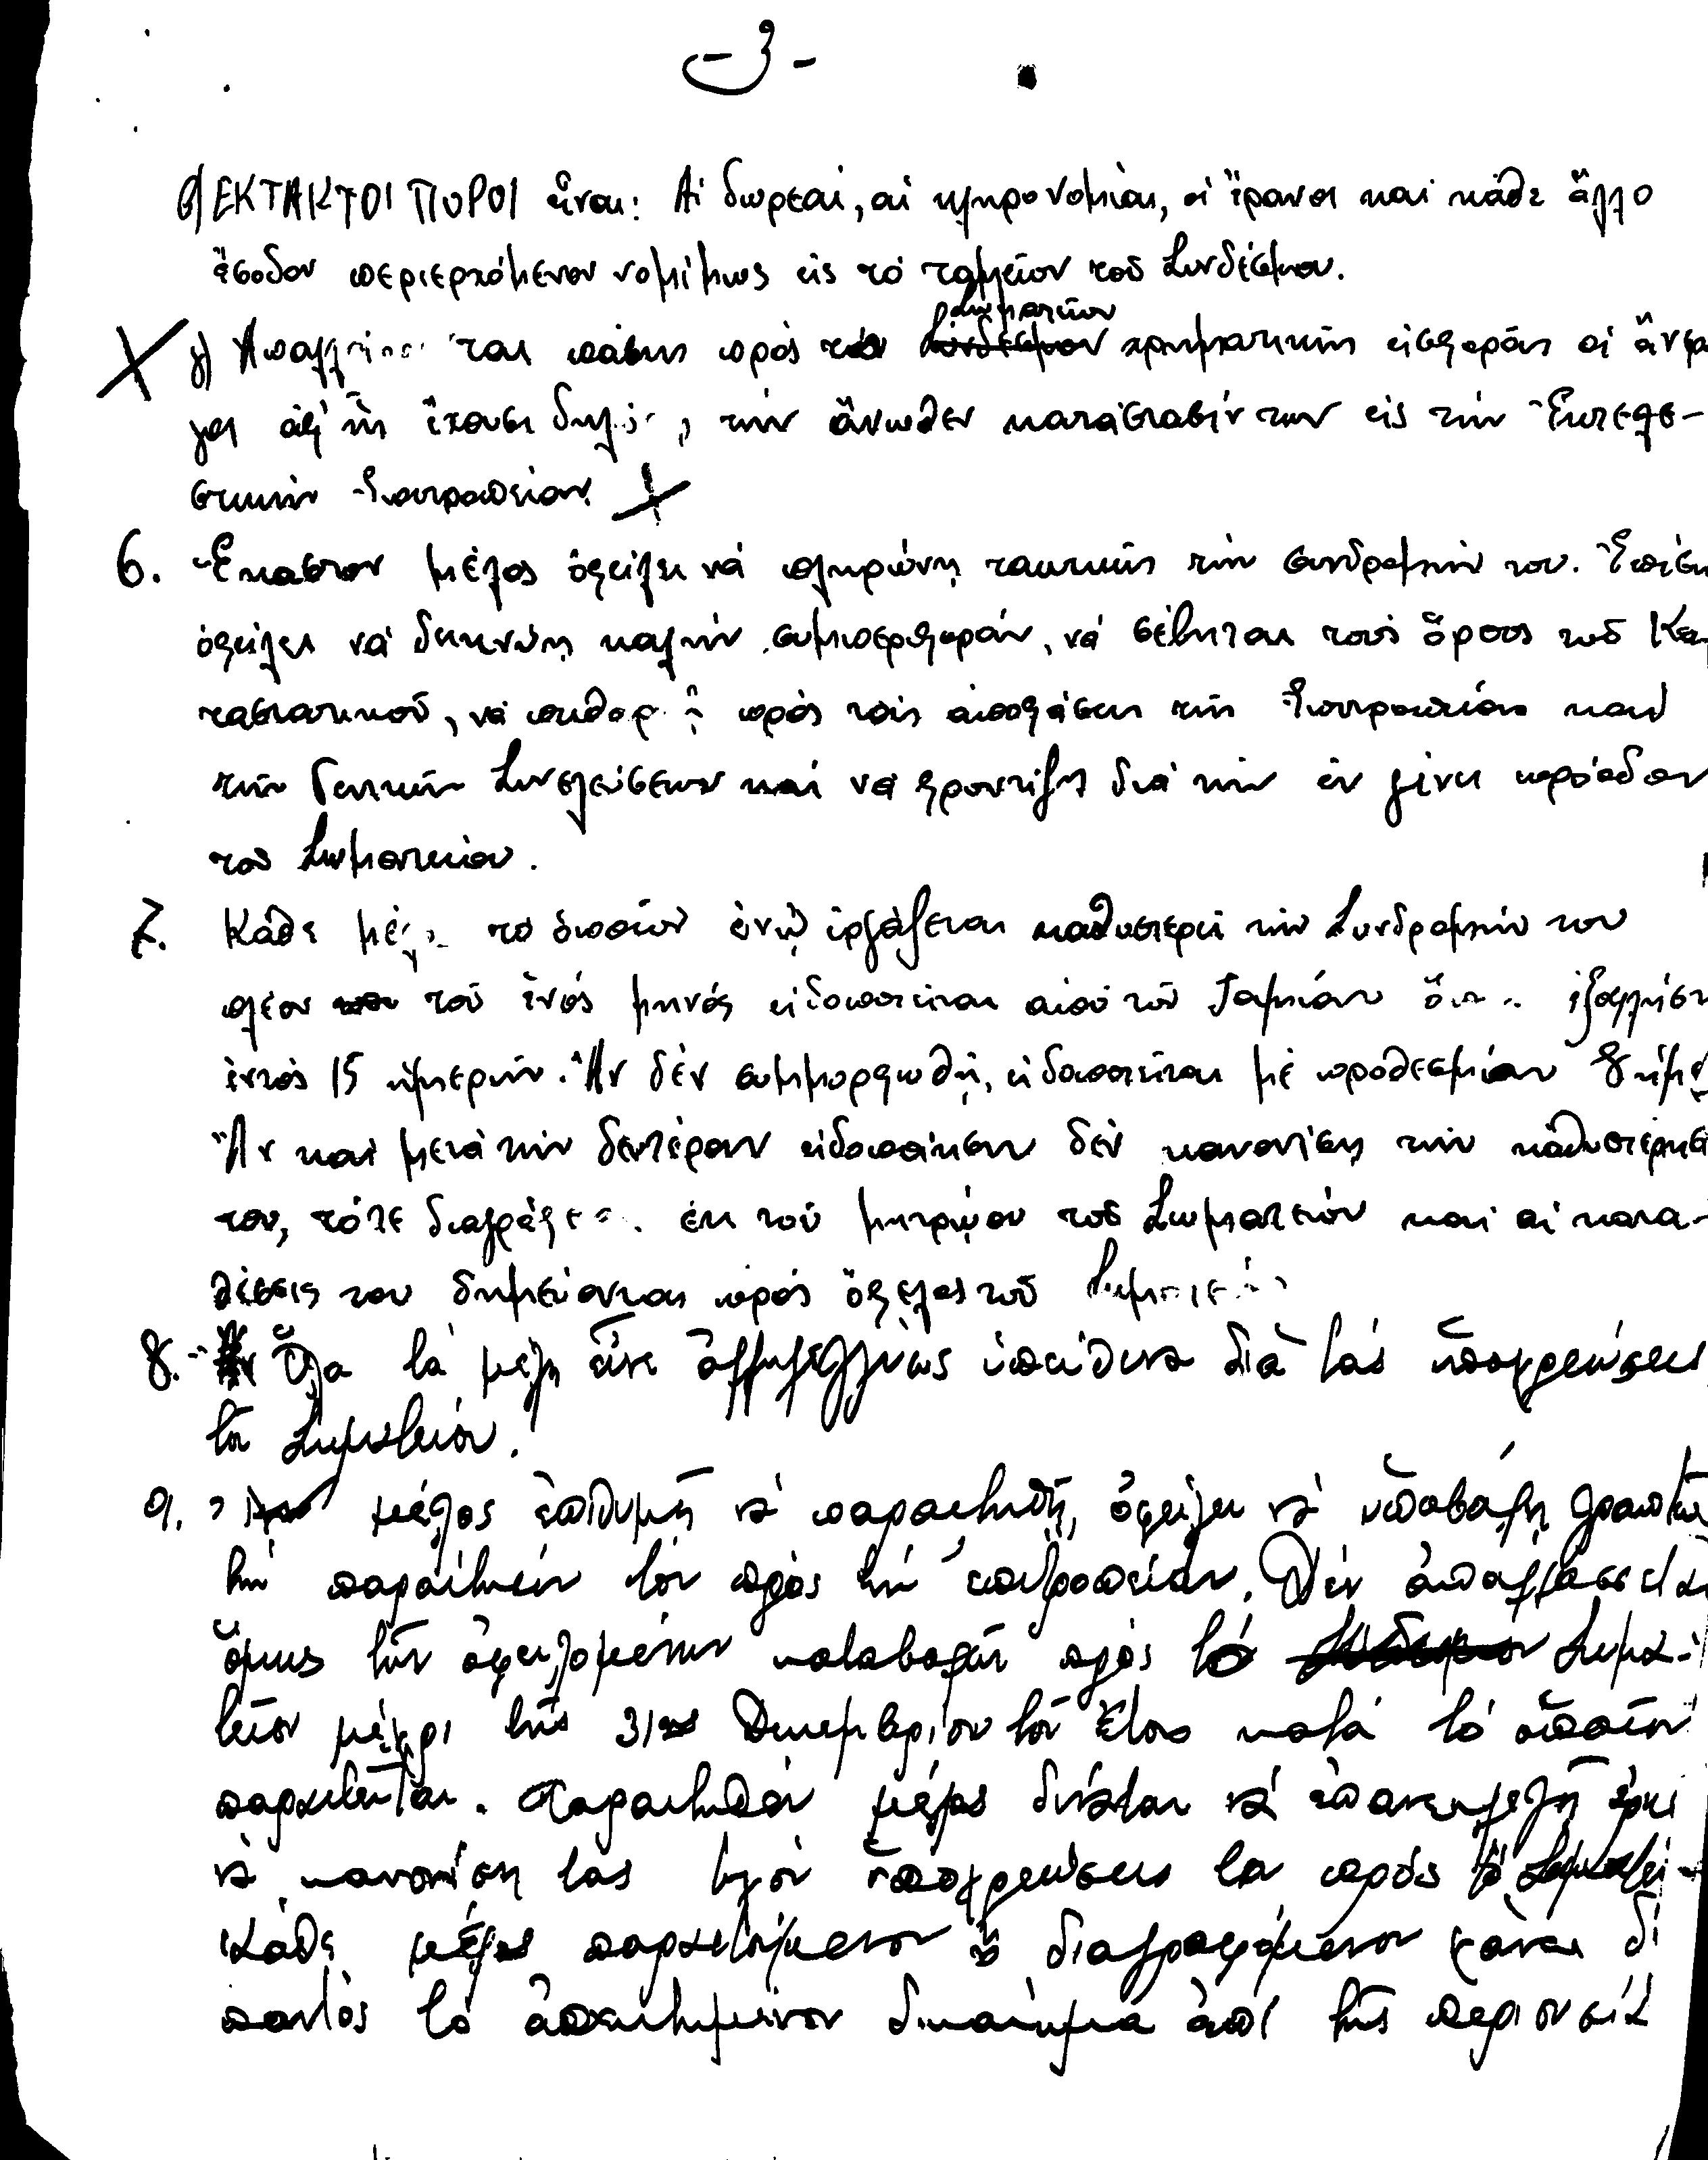 -3-
β) ΕΚΤΑΚΤΟΙ ΠΟΡΟΙ εἶναι: Αἱ δωρεαί, αἱ κληρονομίαι, οἱ ἔρανοι καί κάθε ἄλλο
ἔσοδον περιερχόμενον νομίμως εἰς τό ταμεῖον τοῦ Συνδέσμου.
Σωματεῖον
γ) τῆς πρός τόν Σύνδεσμον χρηματικῆς εἰσφορᾶς οἱ ἄνερ
γοι ἀφ' ἧς ἔχουσι , τήν ἄνωθεν κατάστασίν των εἰς τήν Ἐκτελε-
στικήν Ἐπιτροπείαν.
6. Ἕκαστον μέλος ὀφείλει νά πληρώνῃ τακτικῶς τήν συνδρομήν του. Ἐπίση
ὀφείλει νά δεικνύῃ καλήν συμπεριφοράν, νά σέβηται τούς ὅρους τοῦ Κα
ταστατικοῦ, νά πρός τάς ἀποφάσεις τῆς Ἐπιτροπείας καί
τῶν Γενικῶν Συνελεύσεων καί νά φροντίζῃ διά τήν ἐν γένει πρόοδον
τοῦ Σωματείου.
7. Κάθε τό ὁποῖον ἐνῷ ἐργάζεται καθυστερεῖ τήν Συνδρομήν του
πλέον τοῦ ἑνός μηνός εἰδοποιεῖται ἀπό τόν Ταμίαν
ἐντός 15 ἡμερῶν. Ἄν δέν συμμορφωθῇ, εἰδοποιεῖται μέ προθεσμίαν 8 ἡμε
Ἄν καί μετά τήν δευτέραν εἰδοποίησιν δέν κανονίσῃ τήν καθυστέρησι
του, τότε ἐκ τοῦ μητρῴου τοῦ Σωματείου καί αἱ κατα-
θέσεις του δημεύονται πρός ὄφελος τοῦ
8.- Ὅλα τά μέλη εἶνε ἀλληλεγγύως ὑπεύθυνα διά τάς ὑποχρεώσεις
τοῦ Σωματείου.
9. μέλος ἐπιθυμῆ νά παραιτηθῇ, ὀφείλει νά ὑποβάλῃ γραπτῶ
τήν παραίτησίν του πρός τήν ἐπιτροπείαν. Δέν ἀπαλλάσσεται
ὅμως τῶν ὀφειλομένων καταβολῶν πρός τό Σωμα-
τεῖον μέχρι τῆς 31ης Δεκεμβρίου τοῦ ἔτους κατά τό ὁποῖον
παραιτεῖται. Παραιτηθέν μέλος δύναται νά
νά κανονίσῃ τάς ὑποχρεώσεις του πρός τό Σωματεῖ-
Κάθε μέλος παραιτούμενον ἤ διαγραφόμενον χάνει δι
παντός τό δικαίωμα ἐπί τῆς περιουσία